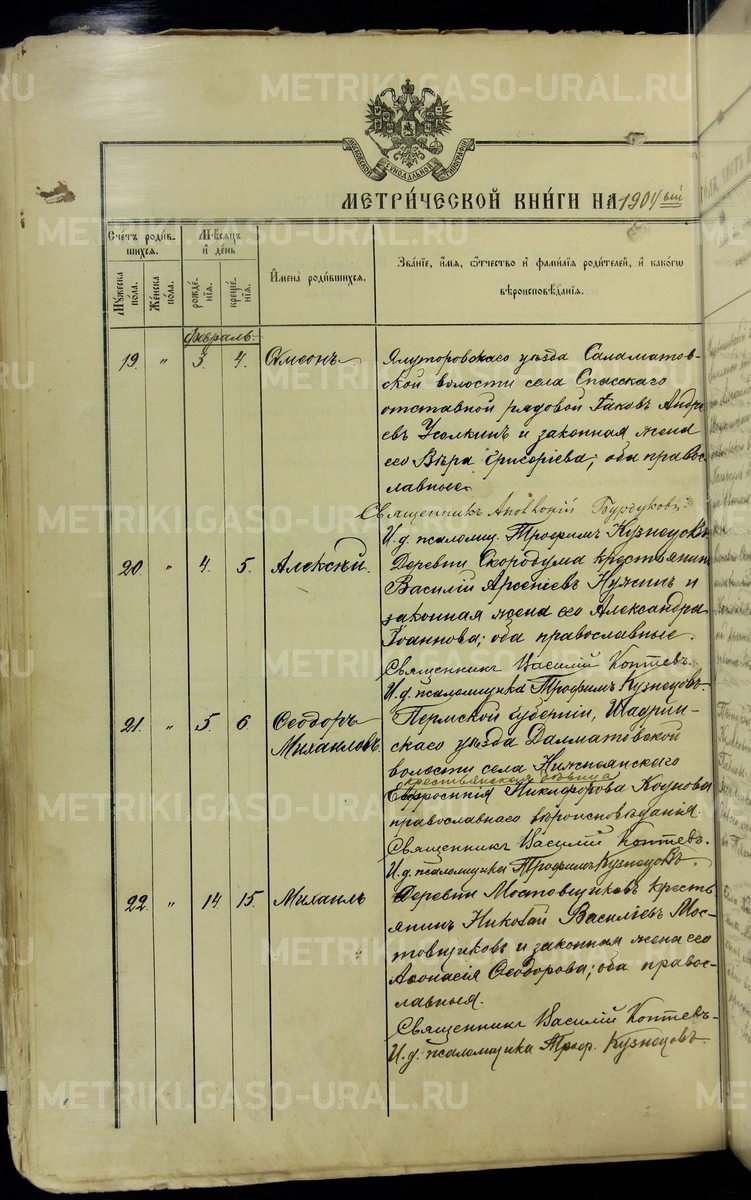 МОСКОВСКОЙ СѴНОДАЛЬНОЙ ТИПОГРАФІИ
МЕТРИ́ЧЕСКОЙ КНИ́ГИ НА 1904 ый
Сче́тъ роди́вшихсѧ.
Мꙋ́жеска по́ла.
Же́нска по́ла.
Мѣ́сѧцъ и҆ де́нь
рожде́нїѧ.
креще́нїѧ.
И҆мена̀ роди́вшихсѧ.
Зва́нїе, и҆́мѧ, ѻ҆́тчество и҆ фами́лїѧ роди́телей, и҆ како́гѡ
вѣроисповѣ́данїѧ.
Февраль.
19. " 3. 4. Симеонъ
Ялуторовскаго уѣзда Саламатов-
ской волости села Спасскаго
отставной рядовой Іаковъ Андре
евъ Усолкинъ и законная жена
его Вѣра Григоріева; оба правос-
лавные.
Священникъ Анѳоній Бурдуковъ.
И. д. псаломщ. Трофимъ Кузнецовъ
20. " 4. 5. Алексѣй.
Деревни Скородума крестьянинъ
Василій Арсеніевъ и
законная жена его Александра
Іоаннова; оба православные.
Священникъ Василій Коптевъ.
И. д. псаломщика Трофимъ Кузнецовъ.
21. " 5 6 Ѳеодоръ
Михаиловъ
Пермской губерніи, Шадрин-
скаго уѣзда Далматовской
волости села Нижнеянского
крестьянская дѣвица
Евфросинія Никифорова
православнаго вѣроисповѣданія.
Священникъ Василій Коптевъ.
И. д. псаломщика Трофимъ Кузнецовъ.
22. " 14. 15. Михаилъ
Деревни Мостовщиковъ кресть
янинъ Николай Василіевъ Мос-
товщиковъ и законная жена его
Аѳонасія Ѳеодорова; оба правос-
лавныя.
Священникъ Василій Коптевъ.
И. д. псаломщика Троф. Кузнецовъ.
METRIKI.GASO-URAL.RU